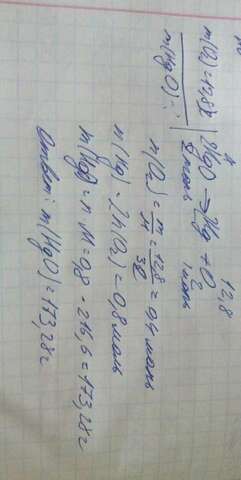 12,8
m(O₂)=12,8г | 2HgO → 2Hg + O₂
m(HgO)-?
2моль 1моль
n(O₂) = m/M = 12,8/32 = 0,4 моль
n(Hg) = 2n(O₂) = 0,8 моль
m(HgO) = n · M = 0,8 · 216,6 = 173,28г
Ответ: m(HgO) = 173,28г